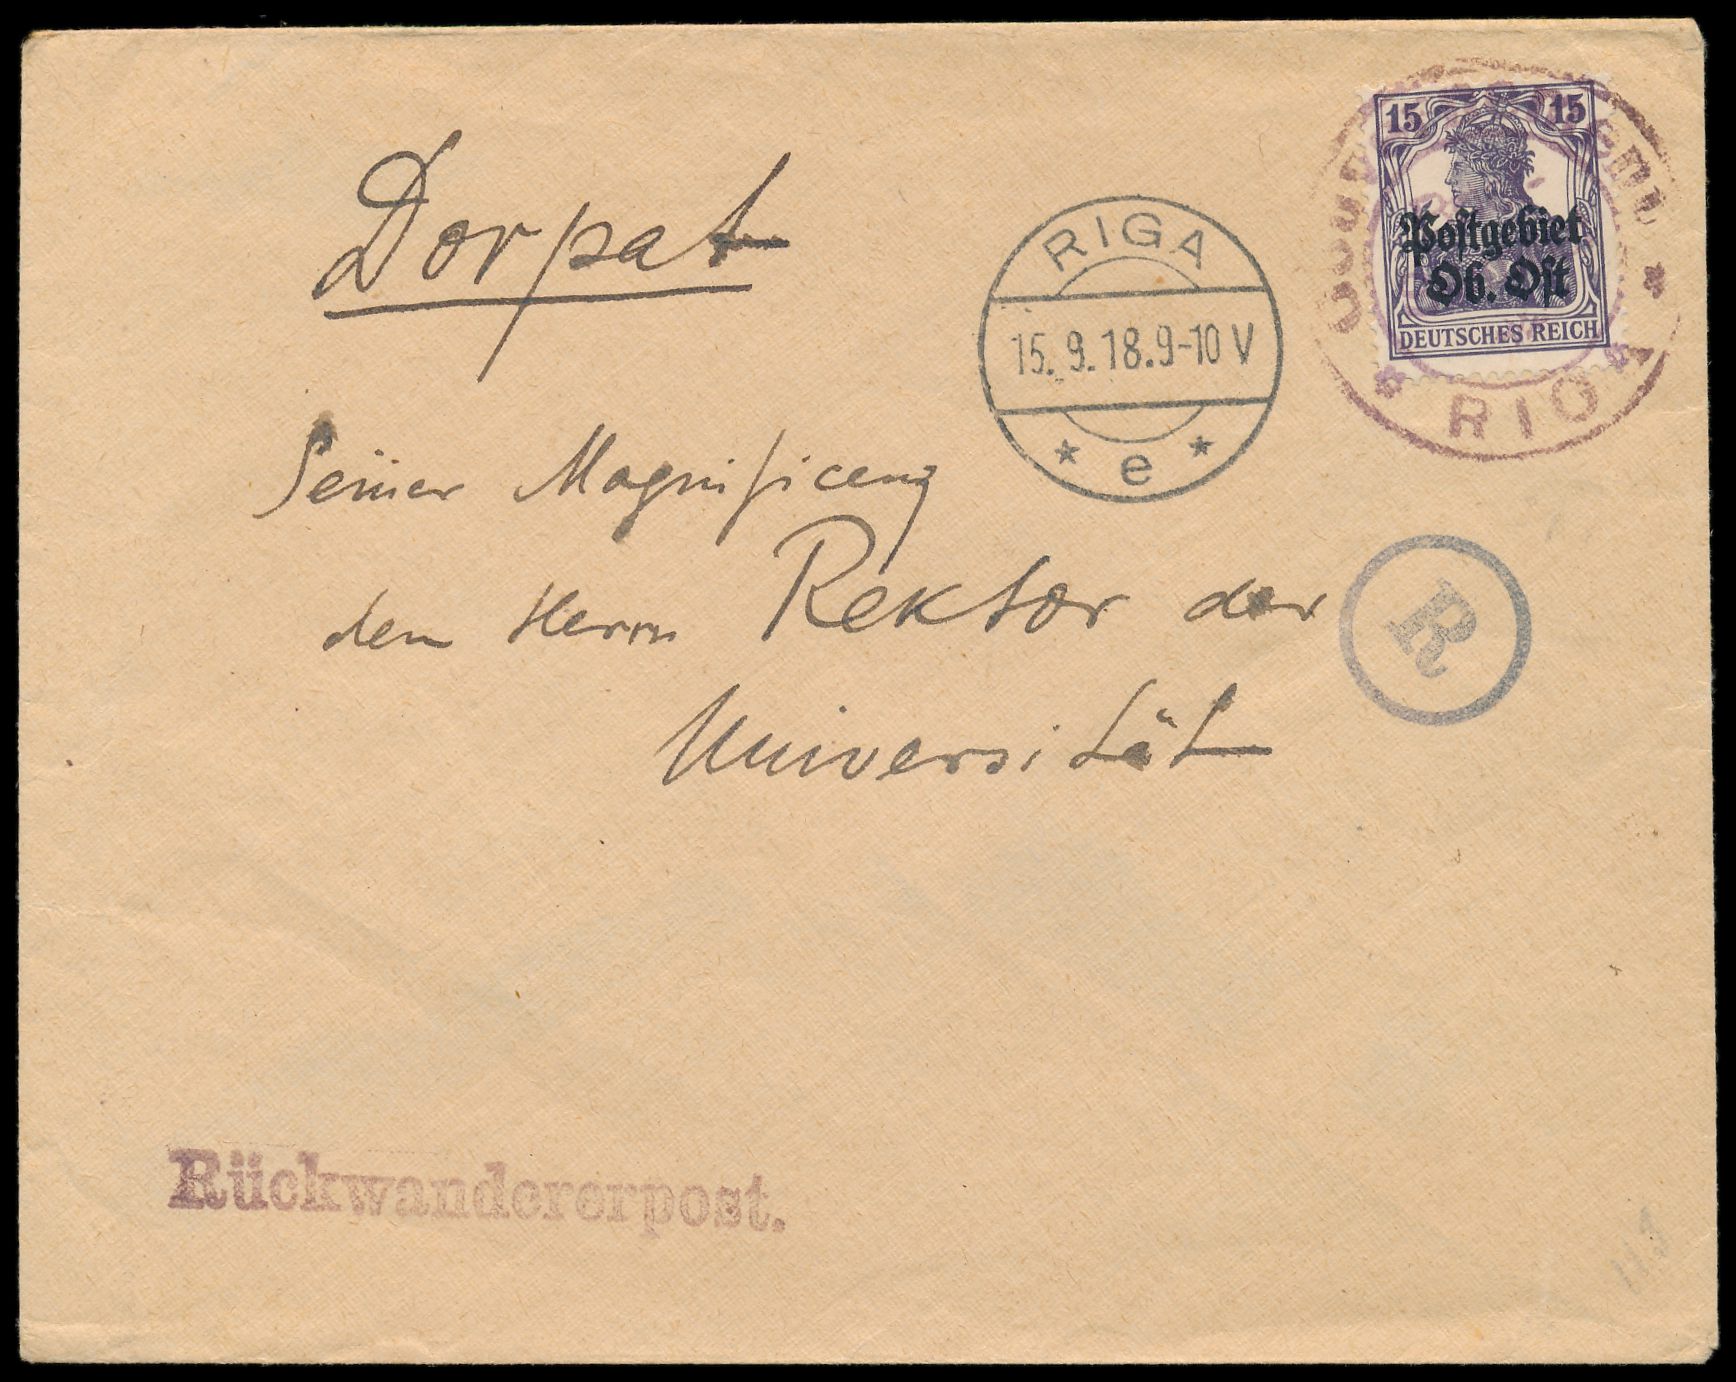 15 15
Postgebiet
Ob. Ost
DEUTSCHES REICH
RIGA
Dorpat
RIGA
15. 9. 18. 9-10 V
* e *
Seiner Magnificenz
dem Herrn Rektor der
Universität
R
Rückwandererpost.